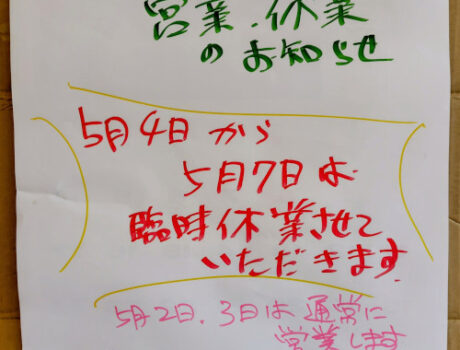 営業.休業
のお知らせ
5月4日から
5月7日は
臨時休業させて
いただきます
5月2日.3日は通常に
営業します